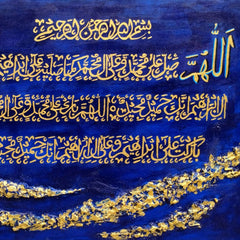 بسم الله الرحمن الرحيم
اللهم صل على محمد وعلى آل محمد كما صليت على إبراهيم
إبراهيم إنك حميد مجيد اللهم بارك على محمد وعلى آل
باركت على إبراهيم وعلى آل إبراهيم إنك حميد مجيد